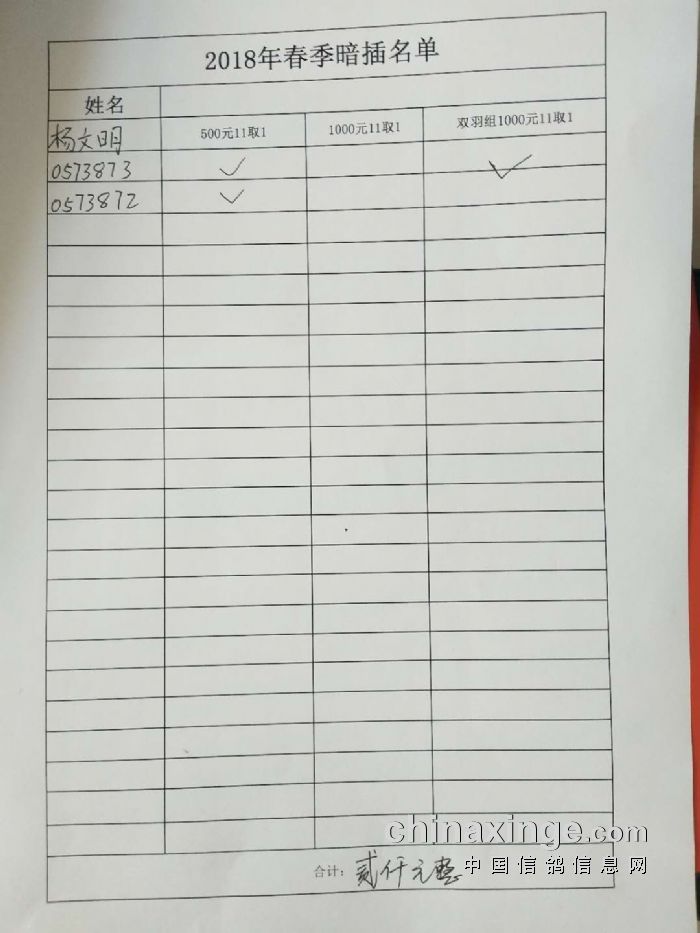 2018年春季暗插名单
姓名
杨文明 500元11取1 1000元11取1 双羽组1000元11取1
0573873 ✓ ✓
0573872 ✓
chinaxinge.com
合计: 贰仟元整 中国信鸽信息网